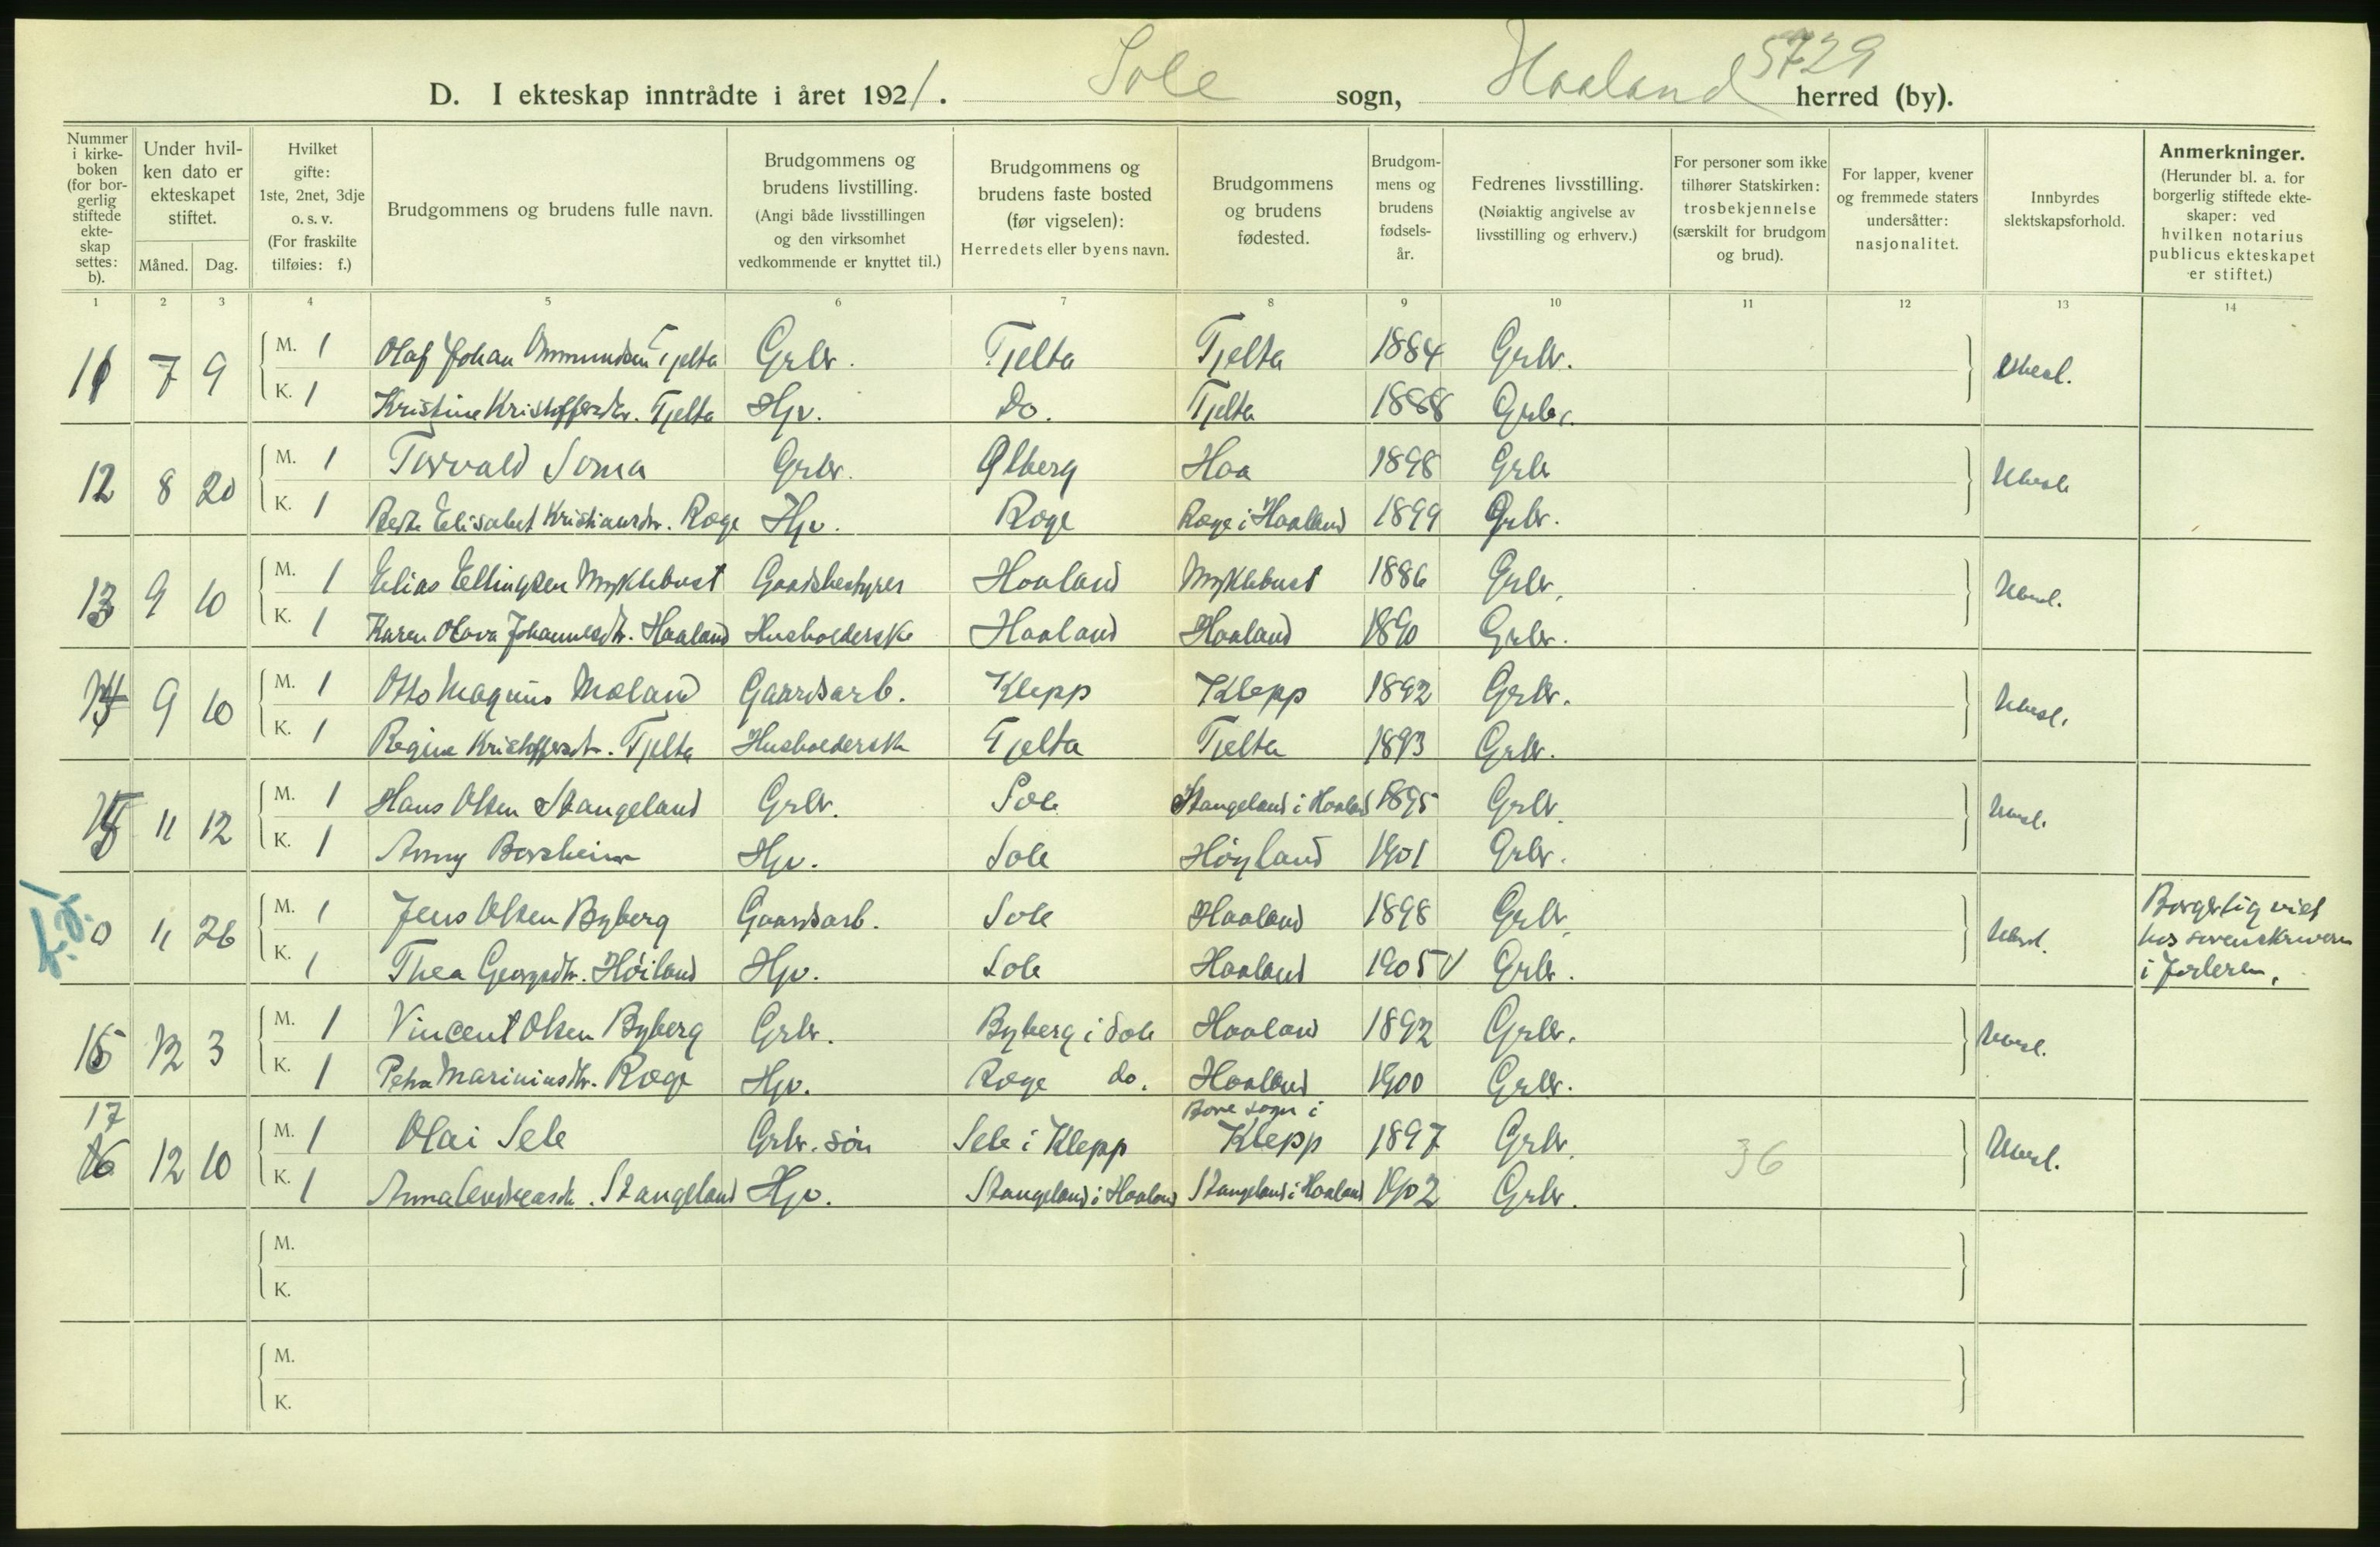 5729
D. I ekteskap inntrådte i året 1921. Sole sogn, Haaland herred (by).
Nummer i kirke-boken (for bor-gerlig stiftede ekte-skap settes: b).
Under hvil-ken dato er ekteskapet stiftet.
Måned. Dag.
Hvilket gifte: 1ste, 2net, 3dje o. s. v. (For fraskilte tilføies: f.)
Brudgommens og brudens fulle navn.
Brudgommens og brudens livstilling. (Angi både livsstillingen og den virksomhet vedkommende er knyttet til.)
Brudgommens og brudens faste bosted (før vigselen): Herredets eller byens navn.
Brudgommens og brudens fødested.
Brudgom-mens og brudens fødsels-år.
Fedrenes livsstilling. (Nøiaktig angivelse av livsstilling og erhverv.)
For personer som ikke tilhører Statskirken: trosbekjennelse (særskilt for brudgom og brud).
For lapper, kvener og fremmede staters undersåtter: nasjonalitet.
Innbyrdes slektskapsforhold.
Anmerkninger. (Herunder bl. a. for borgerlig stiftede ekte-skaper: ved hvilken notarius publicus ekteskapet er stiftet.)
1 2 3 4 5 6 7 8 9 10 11 12 13 14
11 7 9 M. 1 Olaf Johan Ommundsen Tjelta Grbr. Tjelta Tjelta 1884 Grbr. Ubesl.
K. 1 Kristine Kristoffersdtr. Tjelta Hjv. Do. Tjelta 1888 Grbr.
12 8 20 M. 1 Torvald Soma Grbr. Ølberg Haa 1898 Grbr Ubesl.
K. 1 Elisabet Kristiansdtr. Røge Hjv. Røge Røge i Haaland 1899 Grbr.
13 9 10 M. 1 Elias Ellingsen Myklebust Gaardsbestyrer Haaland Myklebust 1886 Grbr. Ubesl.
K. 1 Karen Olava Johannesdtr. Haaland Husholderske Haaland Haaland 1890 Grbr.
14 9 10 M. 1 Otto Magnus Mæland Gaardsarb. Klepp Klepp 1892 Grbr. Ubesl.
K. 1 Regine Kristoffersdtr. Tjelta Husholdersk Tjelta Tjelta 1893 Grbr.
15 11 12 M. 1 Hans Olsen Stangeland Grbr. Sole Stangeland i Haaland 1895 Grbr. Ubesl.
K. 1 Anny Borsheim Hjv. Sole Höyland 1901 Grbr.
0 11 26 M. 1 Jens Olsen Byberg Gaardsarb. Sole Haaland 1898 Grbr. Ubesl. Borgerlig viet
K. 1 Thea Georgsdtr. Höiland Hjv. Sole Haaland 1905 V Grbr. hos sorenskriveren
i Jæderen.
16 12 3 M. 1 Vincent Olsen Byberg Grbr. Byberg i Sole Haaland 1892 Grbr. Ubesl.
K. 1 Petra Mariniusdtr. Røge Hjv. Røge do. Haaland 1900 Grbr.
17 Bore sogn i
16 12 10 M. 1 Olai Sele Grbr. sön Sele i Klepp Klepp 1897 Grbr. 36 Ubesl.
K. 1 Anna Andreasdtr. Stangeland Hjv. Stangeland i Haaland Stangeland i Haaland 1902 Grbr.
M.
K.
M.
K.